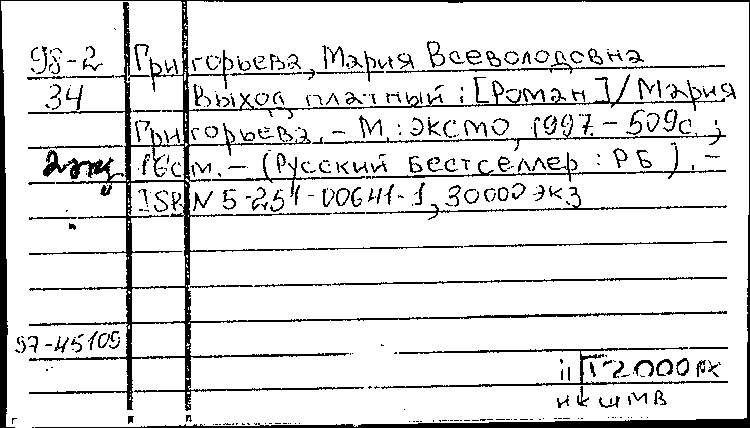 98-2 Григорьева, Мария Всеволодовна
34 Выход платный : [Роман] / Мария
Григорьева. – М. : ЭКСМО, 1997. – 509с ;
2 экз 16см. – (Русский бестселлер : РБ ). –
ISBN 5-251-00641-1, 30000 экз
97-45109